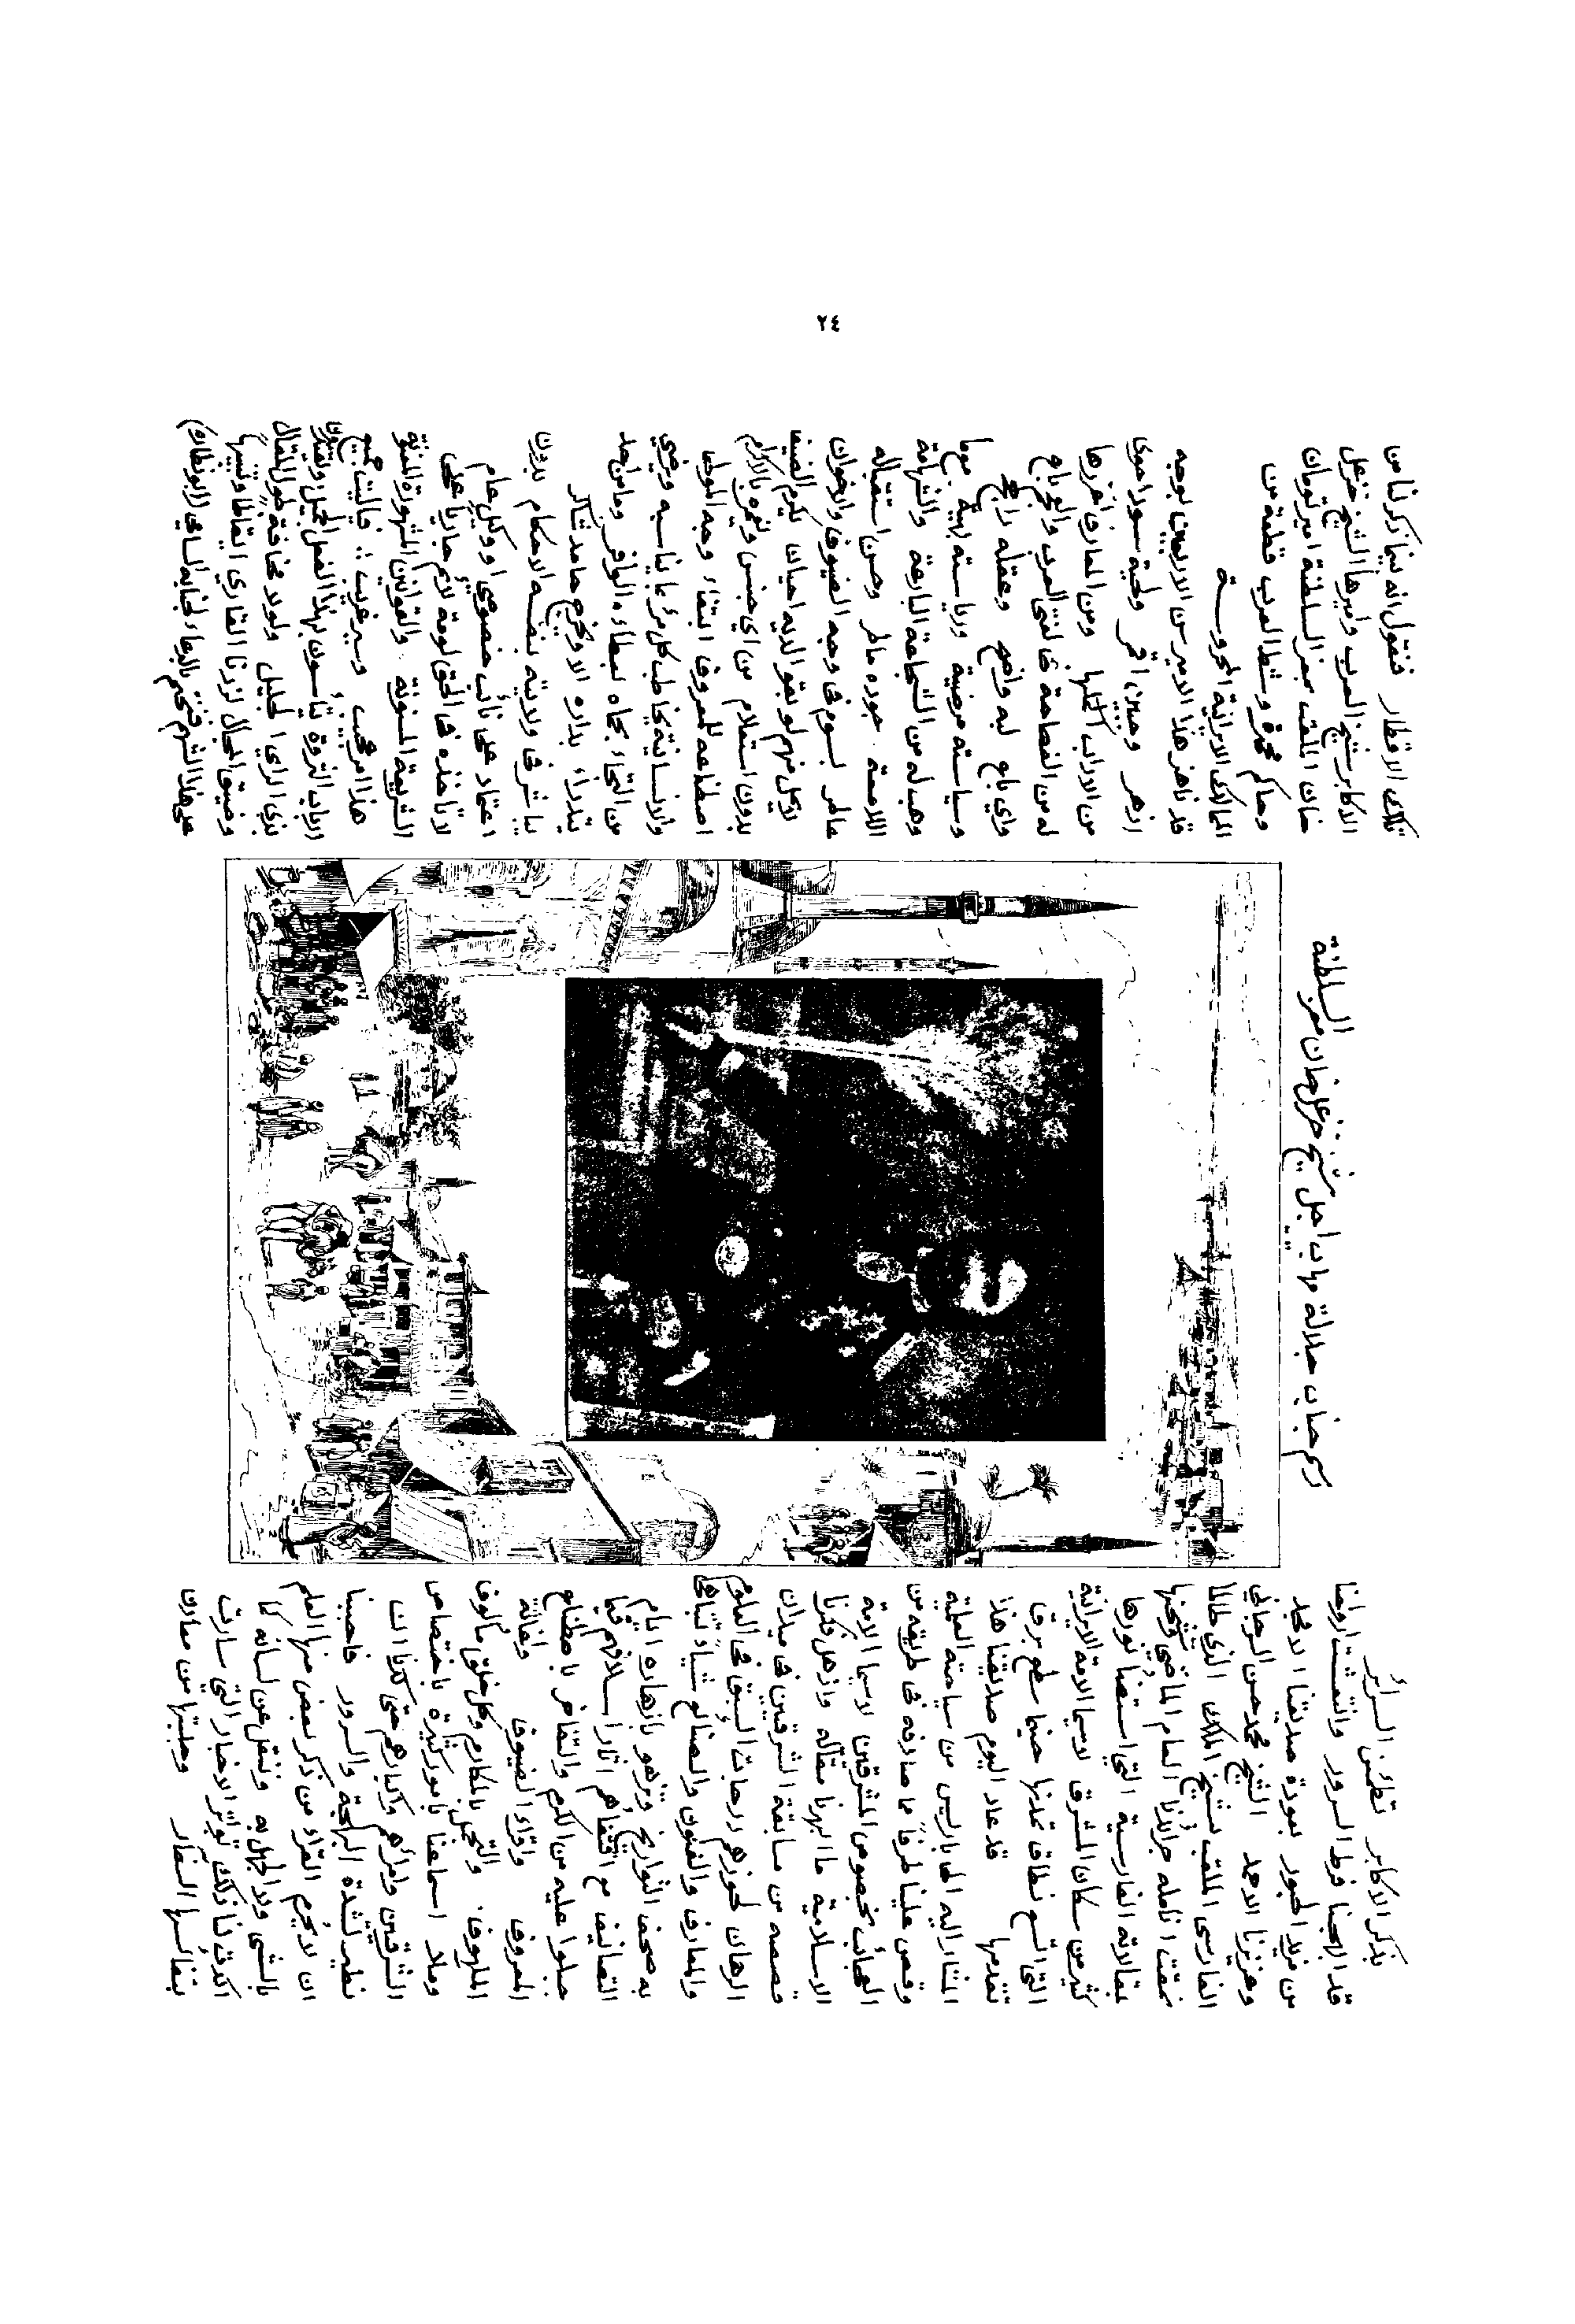 ٢٤
بذكر الاكابر تطمئن السرائر
قد ابهجنا فرط السرور وانتعشت ارواحنا
من مزيد الحبور بعودة صديقنا الامجد
وعزيزنا الاوحد الشيخ محمد حسن
الفارسى الملقب بشيخ الملك الذي طالما
نمقت انامله جرائدنا العام الماضى وشحنها
بمقالاته الفارسية التي استضا بنورها
كثير من سكان المشرق لاسيما الامة الايرانية
التى اتسع نطاق تمدنها حينما سطع برق
تقدمها قد عاد اليوم صديقنا هذا
المشار اليه الى باريس من سياحته العلمية
وقص علينا طرفاً مما صادفه فى طريقه من
العجائب بخصوص المشرقين لاسيما الامة
الاسلامية ما ابهرنا مقاله واذهل فكرنا
قصصه من مسابقة الشرقيين فى ميدان
الرهان لحوزهم درجات السبق فى العلوم
والمعارف والفنون والصنائع شيأ تتباهى
به صحف التواريخ وتزهو بازهاره ايام
التصانيف مع اقتفاهم اثار اسلافهم فيما
جبلوا عليه من الكرم والتفاخر باصطناع
المعروف واقراء الضيوف واغاثة
الملهوف . والتجمل بالمكارم وكل خلق مألوف
وملا اسماعنا بامور كثيرة باختصاص
الشرقيين وامرائهم واكابرهم حتى كدنا ان
نطير لشدة البهجة والسرور فاحببنا
ان لا نحرم القراء من ذكر بعض منها العلم
بالشى ولا الجهل به وننقل عن لسانه كما
اكدت لنا ذلك تواتر الاخبار التي سارت
بنفائسها السفار وجلبتها من معادن
رسم جناب جلالة مهاب اجل شيخ خزعل خان معز
السلطنة
تلك الاقطار فنقول انه فيما ذكر لنا من
الاكابر شيخ العرب واميرها الشيخ خزعل
خان الملقب بمعز السلطنة امير تومان
وحاكم محمرة وشط العرب قطعة من
الممالك الايرانية المحروسة
قد ناهز هذا الامير سن الاربعين بوجه
ازهر وجبين اقمر ولحية سودا حوى
من الاداب اكملها ومن المعارف اغزرها
له من الفصاحة فى لغتى العرب والعجم باع
واي باع لبه واضح وعقله راجح
وسياسته مرضية ورياسته بهية مهما
وهب له من الشجاعة البارعة والشهامة
اللامعة . جوده ماطر وحسن استقباله
عاطر بسوم فى وجه الضيوف والاخوان
لاكل منهم لو بقوا لديه احيان يكرم الضيف
بدون استعلام من اي جنس ويغمره بالاكرام
اصطناعه للمعروف ابتغاء وجه المولى
والانسانية يخاطب كل مرء بما يناسبه ويرضي
من التجاء بجاه لعطاءه الوافر وما من احد
بداره الا ويخرج حامد شاكر
يباشر فى ولايته بنفسه الاحكام بدون
اعتماد على نائب خصوصى او وكيل عام
لا تاخذه فى الحق لومة لائم جاريا على
الشريعة المسنونة . والقوانين المشهورة المدونة
هذا امر عجيب وسير غريب :: فياليت جميع
ارباب الثروة يتأسون بهذا الفضل الجميل ويقتدون
بذي الراي الجليل ولولا مخافة طول المقال
وضيق المجال لزدنا القارى التقاطا ونفيسها
على هذا الشهم فنختم بالدعاء لجنابه السامي (ابو نظاره)